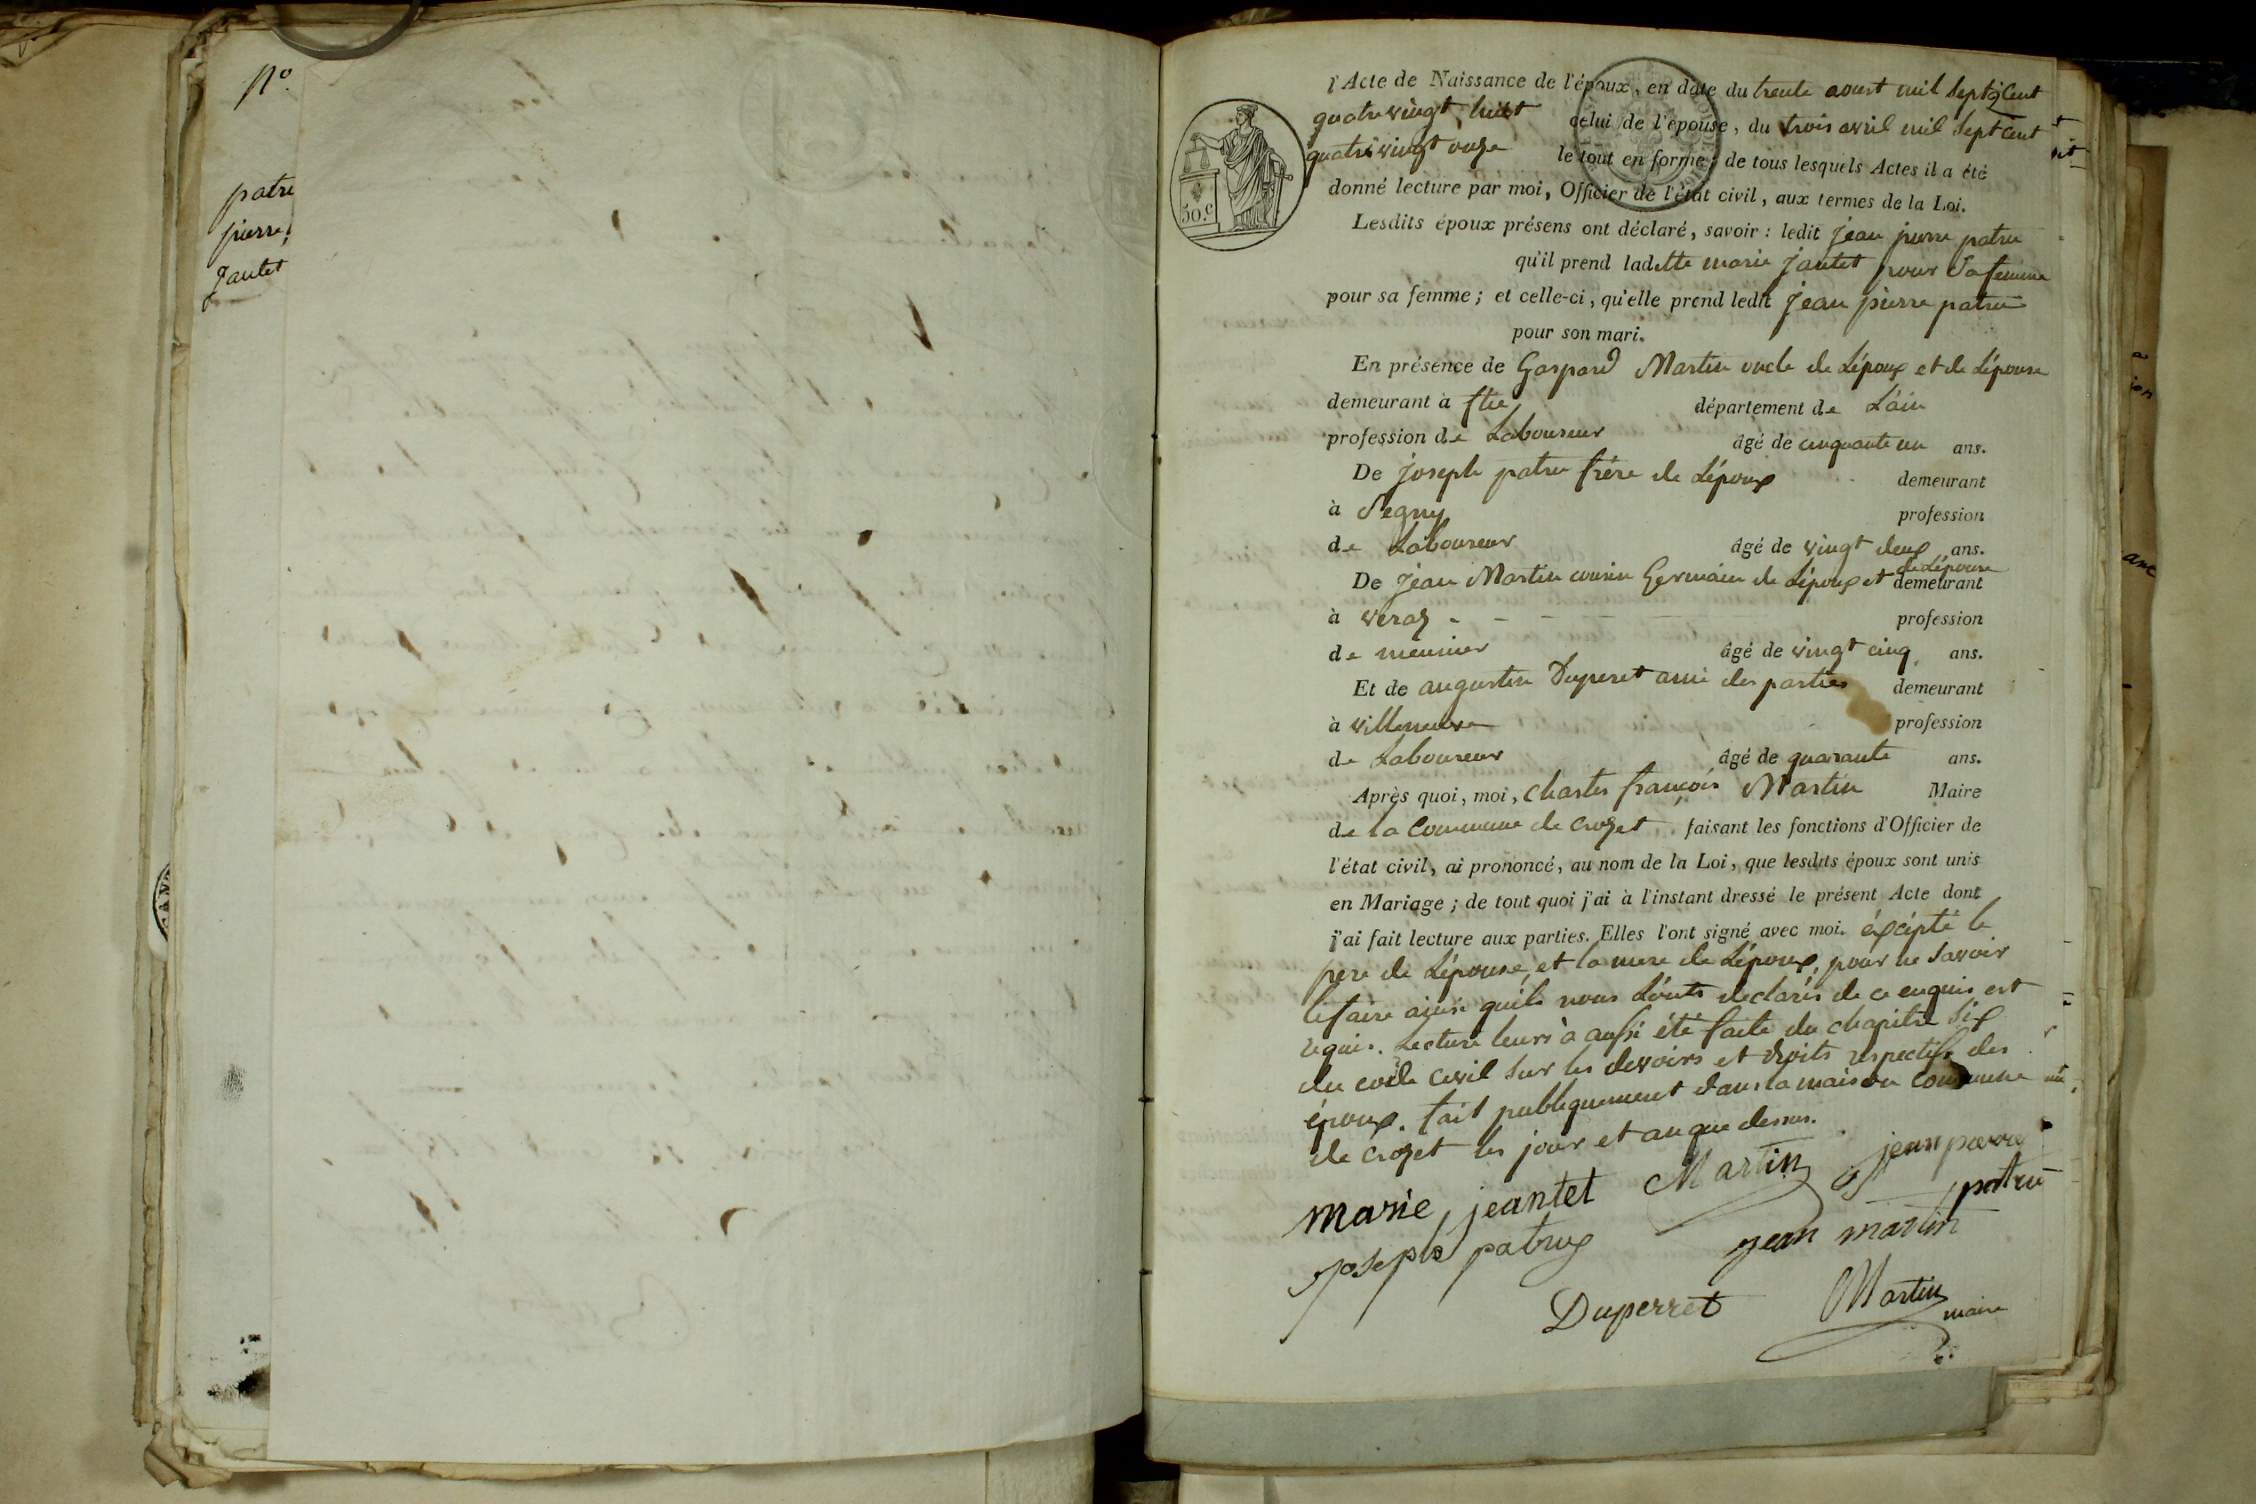 N°.
patru
pierre
Jantet
l'Acte de Naissance de l'époux, en date du trente aoust mil Sept Cent
quatre vingt huit celui de l'épouse, du trois avril mil Sept Cent
quatre vingt onze le tout en forme; de tous lesquels Actes il a été
donné lecture par moi, Officier de l'état civil, aux termes de la Loi.
50.c
Lesdits époux présens ont déclaré, savoir : ledit jean pierre patru
qu'il prend ladette marie jantet pour Sa femme
pour sa femme; et celle-ci, qu'elle prend ledit jean pierre patru
pour son mari.
En présence de Gaspard Martin oncle de Lépoux et de Lépouse
demeurant à département de L'ain
profession de Laboureur âgé de cinquante un ans.
De joseph patru frère de Lépoux demeurant
à Segny profession
de Laboureur âgé de vingt deux ans.
de Lépouse
De jean Martin cousin Germain de Lépoux et demeurant
à veraz - - - - - profession
de meunier âgé de vingt cinq ans.
Et de augustin Duperet ami des parties demeurant
à villeneuve profession
de Laboureur âgé de quarante ans.
Après quoi, moi, charles françois Martin Maire
de la Commune de crozet faisant les fonctions d'Officier de
l'état civil, ai prononcé, au nom de la Loi, que lesdits époux sont unis
en Mariage; de tout quoi j'ai à l'instant dressé le présent Acte dont
j'ai fait lecture aux parties. Elles l'ont signé avec moi. éxcépté le
pere de Lépouse, et la mere de Lépoux, pour ne Savoir
le faire ainsi quils nous Lonts declarés de ce enquis est
requis. Lecture leurs à aussi été faite du chapitre Six
du code Civil Sur les devoirs et droits respectifs des
époux. fait publiquement dans la maison commune
de crozet les jour et an que dessus.
marie jeantet Martin jean pierre
patru
joseph patru jean martin
Duperret Martin
maire